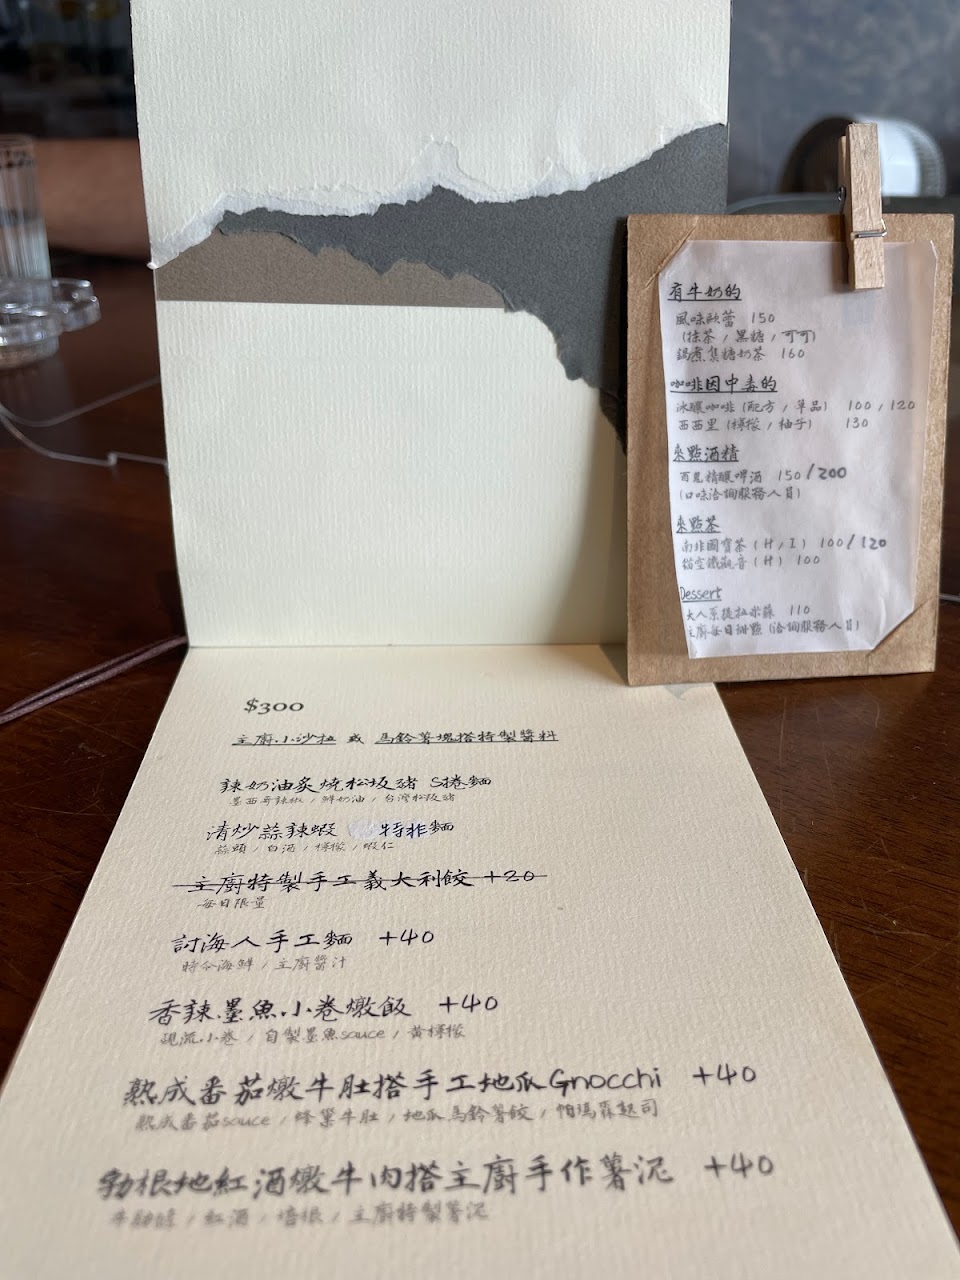 $300
主廚小沙拉 或 馬鈴薯塊搭特製醬料
辣奶油炙燒松坂豬 S捲麵
墨西哥辣椒 / 鮮奶油 / 台灣松坂豬
清炒蒜辣蝦 特非麵
蒜頭 / 白酒 / 檸檬 / 蝦仁
主廚特製手工義大利餃 +20
每日限量
討海人手工麵 +40
時令海鮮 / 主廚醬汁
香辣墨魚小卷燉飯 +40
現流小卷 / 自製墨魚sauce / 黃檸檬
熟成番茄燉牛肚搭手工地瓜Gnocchi +40
熟成番茄sauce / 蜂巢牛肚 / 地瓜馬鈴薯餃 / 帕瑪森起司
勃根地紅酒燉牛肉搭主廚手作薯泥 +40
牛肋條 / 紅酒 / 培根 / 主廚特製薯泥
有牛奶的
風味歐蕾 150
(抹茶 / 黑糖 / 可可)
鍋煮焦糖奶茶 160
咖啡因中毒的
冰釀咖啡 (配方 / 單品) 100 / 120
西西里 (檸檬 / 柚子) 130
來點酒精
百鬼精釀啤酒 150 / 200
(口味洽詢服務人員)
來點茶
南非國寶茶 (H / I) 100 / 120
貓空鐵觀音 (H) 100
Dessert
大人系提拉米蘇 110
主廚每日甜點 (洽詢服務人員)